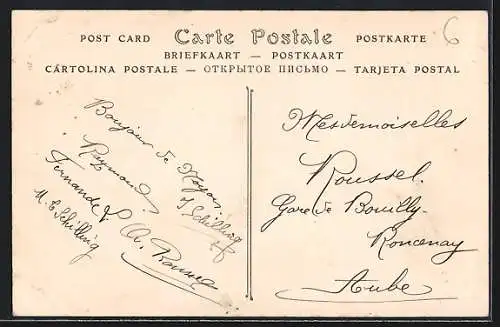 POST CARD Carte Postale POSTKARTE
BRIEFKAART — POSTKAART
CARTOLINA POSTALE — ОТКРЫТОЕ ПИСЬМО — TARJETA POSTAL
6
Bonjour de Noyon
Raymond
J Schilling
Fernande &
M. E Schilling
A.
Mesdemoiselles
Roussel.
Gare de Bouilly-
Roncenay
Aube